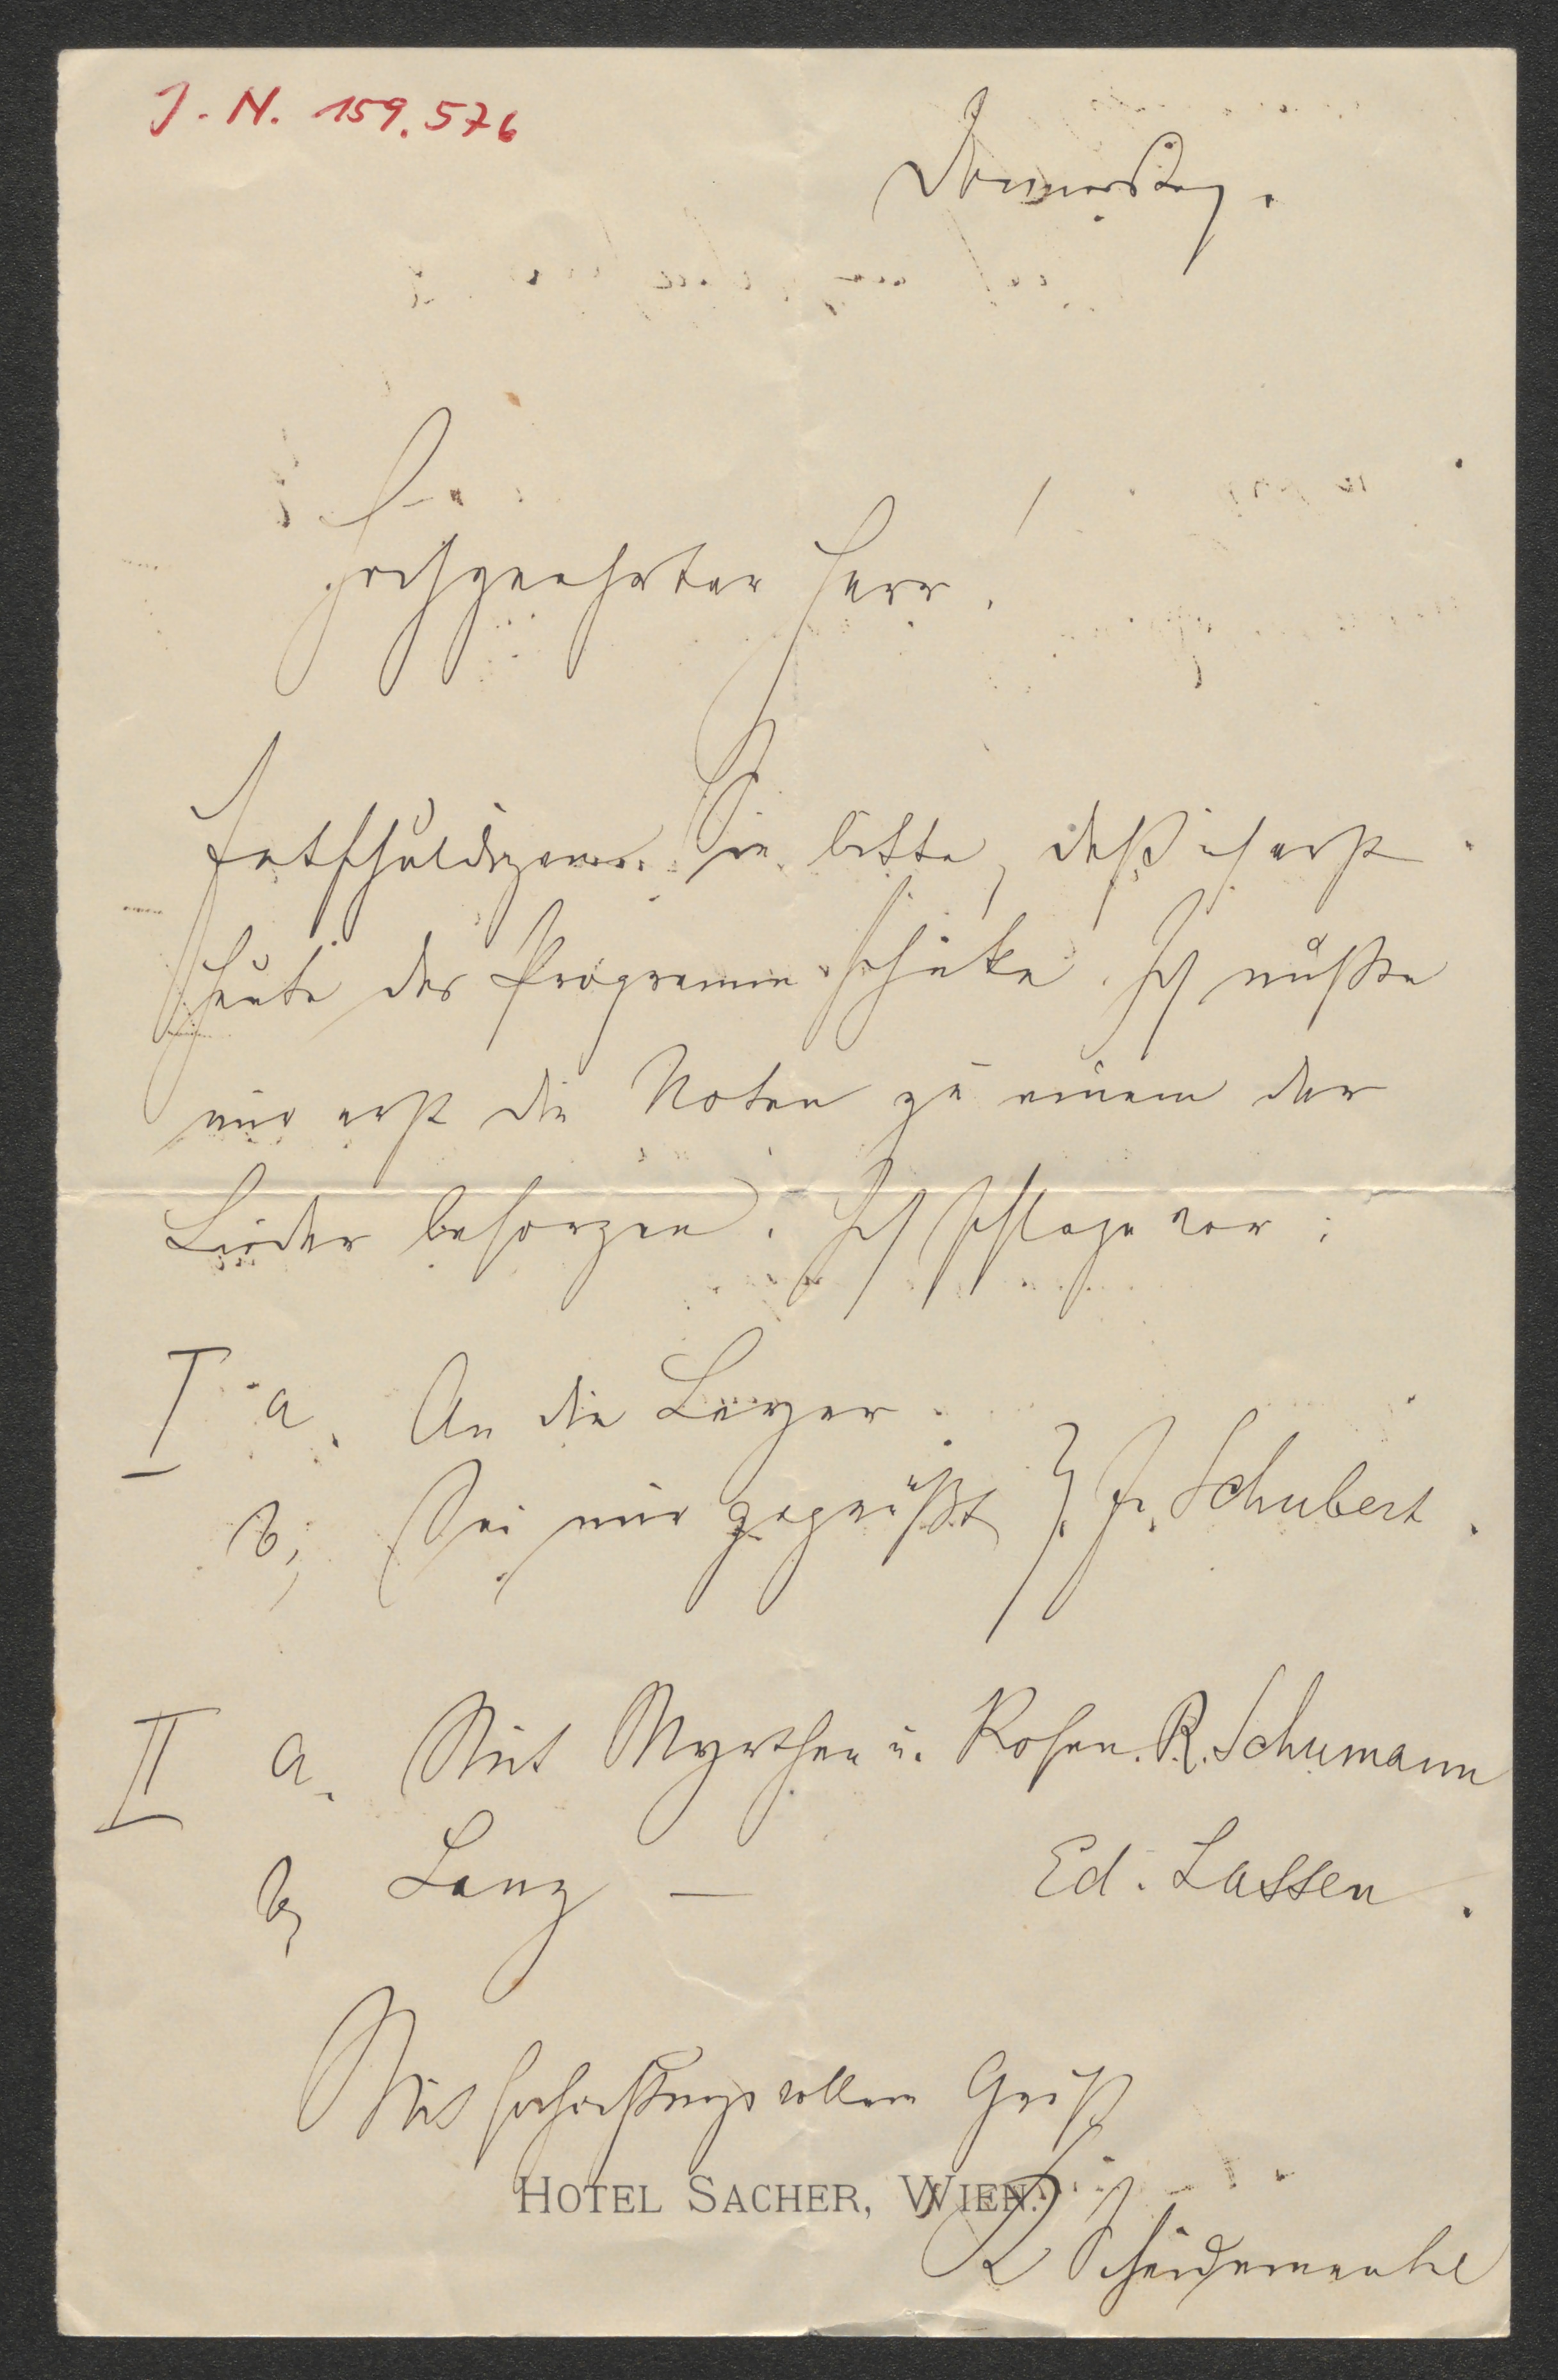 J. N. 159.576
Donnerstag.
Hochgeehrter Herr!
Entschuldigen Sie bitte, daß ich erst
heute das Programm schicke. Ich mußte
mir erst die Noten zu einem der
Lieder besorgen. Ich schlage vor:
I a. An die Leyer.
b, Sei mir gegrüßt } Fr. Schubert.
II a. Mit Myrthen u. Rosen. R. Schumann
b, Lenz — Ed. Lassen.
Mit hochachtungsvollem Gruß
HOTEL SACHER, WIEN.
K Scheidemantel